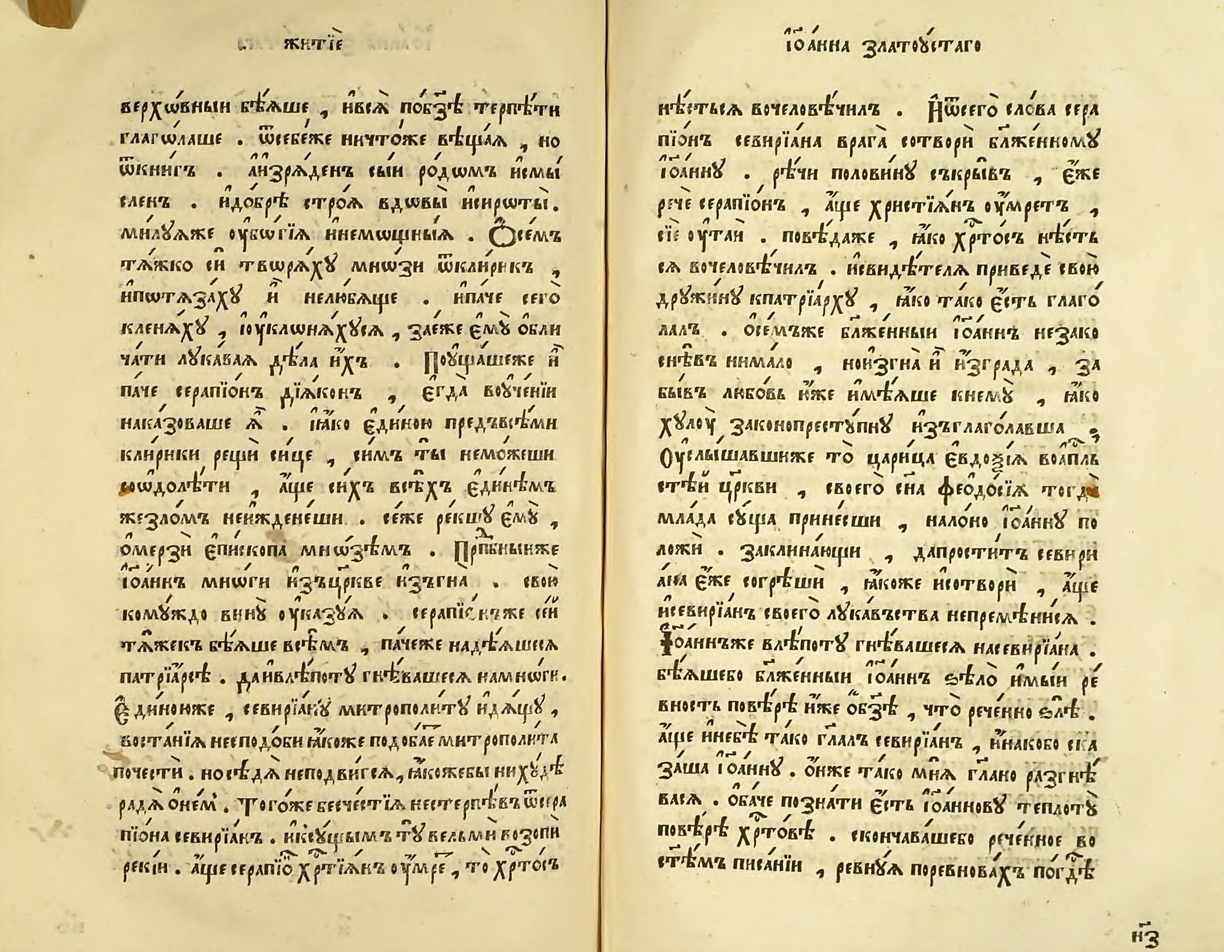 житїѐ
верхѡ́вныи бѣ́ѧше , ивсѧ̀ побз҃ѣ терпѣ́ти
глаго́лаше . ѿсебе́же ничто́же вѣща́ѧ , но
ѿкни́гъ . аизрѧ́денъ сы́и ро́дѡмъ исмы́
сленъ . идо́брѣ стро́ѧ вдѡвы̀ иси́рѡты̀.
ми́лꙋѧже ᲂубѡ́гїѧ инемѡщны́ѧ . Осе́мъ
тѧ́жко сѝ твѡрѧ́хꙋ мнѡ́зи ѿкли́рикъ ,
ипѡтѧза́хꙋ и҆̀ нелю́бѧще . ипа́че сего̀
кленѧ́хꙋ , іᲂуклѡнѧ́хꙋсѧ , зае́же емꙋ̀ ѡбли
ча́ти лꙋка́ваѧ дѣ́ла и́хъ . Поꙋща́шеже и҆̀
па́че серапїѡ́нъ дїѧ́конъ , егда̀ вᲂуче́нїи
наказо́ваше ѧ҆̀ . ꙗ҆́ко еди́ною предъвсѣ́ми
кли́рики рещѝ си́це , си́мъ ты̀ немо́жеши
ѡдолѣ́ти , а҆́ще си́хъ всѣ́хъ еди́нѣмъ
жезло́мъ неижжене́ши . се́же ре́кшꙋ емꙋ̀ ,
ѡмерзѝ епи́скопа мнѡ́зѣмъ . Прпⷣбныиже
іѡа́ннъ мнѡ́ги изъцр҃кве изъгна̀ . свою̀
комꙋ́ждо винꙋ̀ ᲂука́зꙋѧ . серапїѡ́нъже се́й
тѧ́жекъ бѣ́ѧше всѣ́мъ , па́чеже надѣ́ѧшесѧ
патрїа́рсѣ . даивлѣ́потꙋ гнѣ́вашесѧ намнѡ́ги.
Еди́ноиже , севирїа́нꙋ митрополи́тꙋ идꙋ́щꙋ ,
воста́нїѧ несподо́би ꙗ҆́коже подоба́е митрополи́та
почестѝ . носѣ́дѧ неподви́гсѧ, ꙗ҆́кожебы нихꙋдѣ̀
радѧ̀ онем . Того́же бесче́стїѧ нестерпѣ́въ ѿсера
пїѡна севирїа́нъ . инѣ́сꙋщымъ тꙋ̀ вельмѝ возопѝ
реки́и . а҆́ще серапїѡ́ хрⷭ҇тїѧ́нъ ᲂу́мре , то хрⷭ҇то́съ
іѡ҃а́нна златоꙋ́стаго
нѣ́стьсѧ вочеловѣ́чилъ . Иѿсего̀ сло́ва сера
пїо́нъ севирїа́на врага̀ сотворѝ блаже́нномꙋ
іѡа́ннꙋ . рѣ́чи полови́нꙋ съкры́въ , е҆́же
рече серапїо́нъ , а҆́ще христїѧ́нъ ᲂу́мретъ ,
сїѐ ᲂута́и . повѣ́даже , ꙗ҆́ко хрⷭ҇то́съ нѣ́сть
сѧ вочеловѣ́чилъ . исвидѣ́телѧ приведѐ свою̀
дрꙋжи́нꙋ кпатрїа́рхꙋ , ꙗ҆́ко та́ко е҆́сть глаго́
лалъ . осе́мъже блаже́нныи іѡа́ннъ незако
снѣ́въ нима́ло , ноизгна̀ и҆̀ изгра́да , за
бы́въ любо́вь и҆́же имѣ́ѧше кнемꙋ̀ , ꙗ҆́ко
хꙋ́лᲂу законопрестꙋ́пнꙋ изъглаго́лавша ,
Оуслы́шавшиже то̀ цари́ца евдоѯі́ѧ воапⷭ҇лъ
стѣ́й цр҃кви , своего̀ сн҃а ѳеодо́сїѧ тогда̀
мла́да сꙋ́ща прине́сши , нало́но іѡа́ннꙋ по
ложѝ . заклина́ющи , дапрости́тъ севири
а́на е҆́же согрѣшѝ , ꙗ҆́коже исотворѝ , а҆́ще
исевирїа́нъ своего̀ лꙋка́въства непремѣни́сѧ .
Іѡа́ннъже влѣ́потꙋ гнѣ́вашесѧ насевирїа́на .
бѣ́ѧшебо блаже́нныи іѡа́ннъ ѕѣло̀ имы́и ре́
вность повѣ́рѣ и҆́же ѡбз҃ѣ , что̀ рече́нно ѕлѣ̀ .
а҆́ще инебѣ̀ та́ко гла҃лъ севирїа́нъ , и҆на́кобо ска
за́ша іѡа́ннꙋ . ѻ҆́нже та́ко мнѧ̀ гла҃но разгнѣ́
васѧ . оба́че позна́ти е҆́сть іѡа́нновꙋ теплотꙋ̀
повѣ́рѣ хрⷭ҇то́вѣ . сконча́вашебо рече́нное во
ст҃ѣ́мъ писа́нїи , ревнꙋ́ѧ поревнова́хъ погдⷭ҇ѣ
н҃з